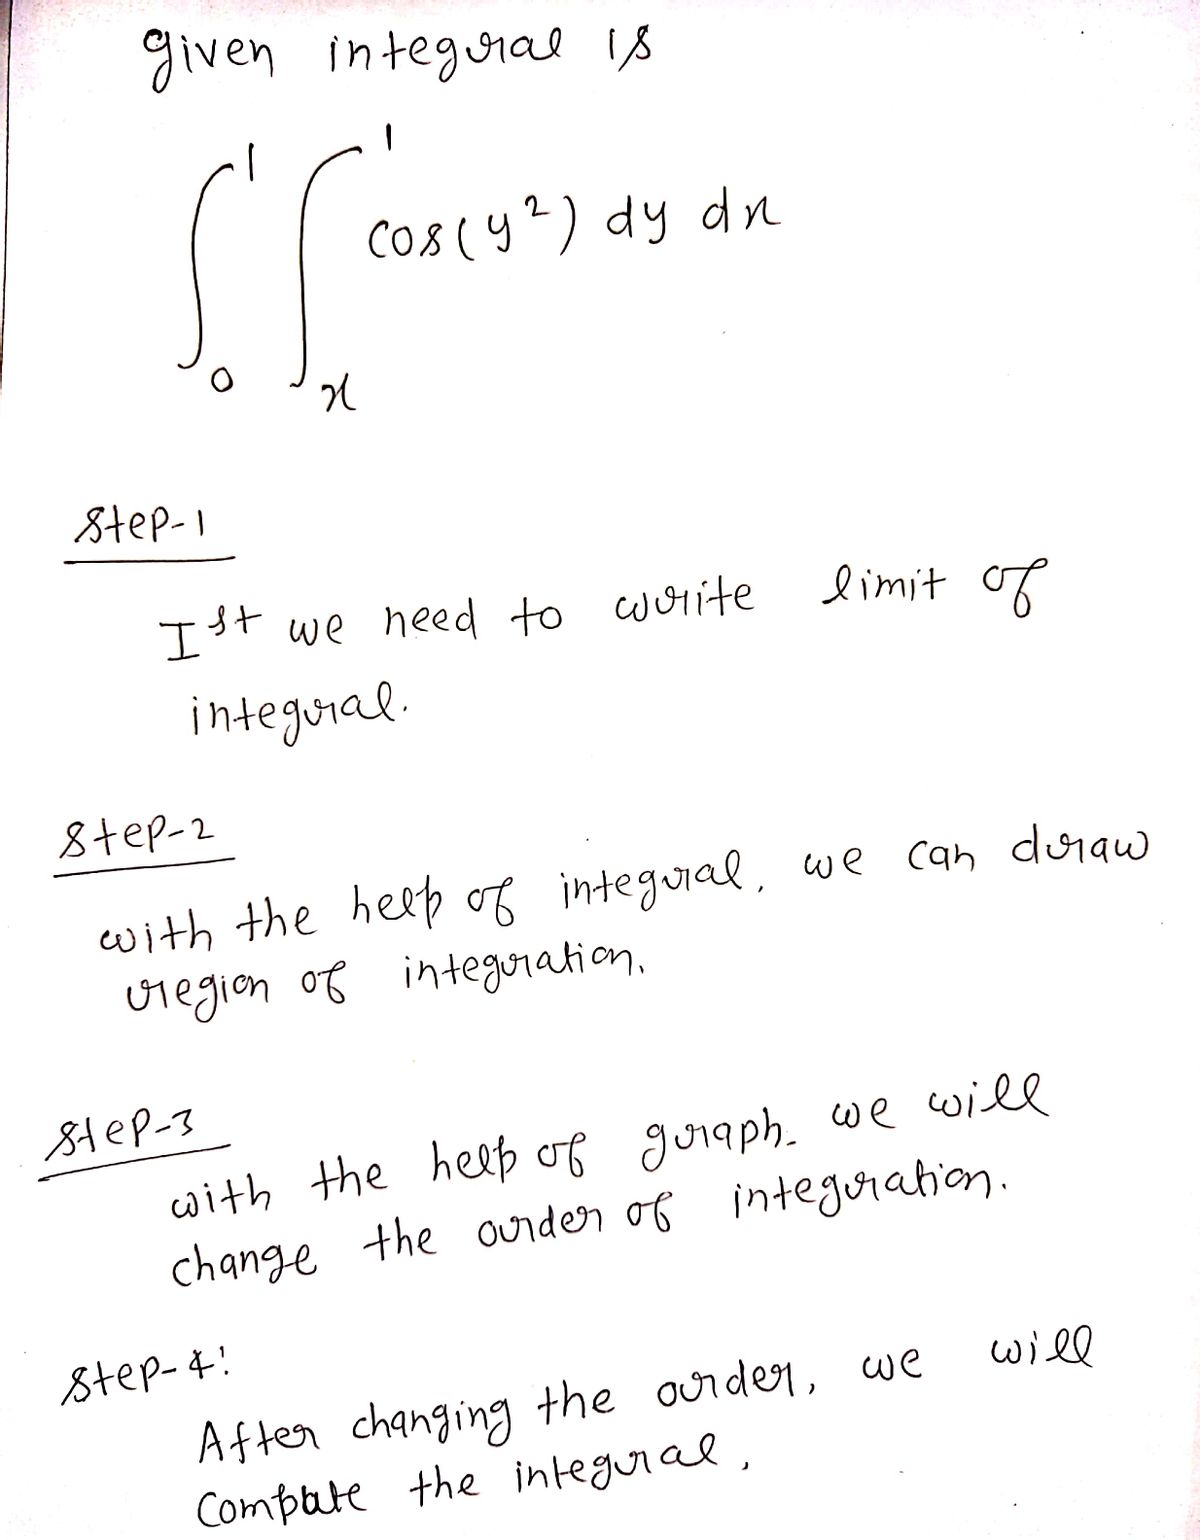 given integral is
∫₀¹ ∫ₓ¹ cos(y²) dy dx
Step-1
Ist we need to write limit of
integral.
Step-2
with the help of integral, we can draw
region of integration.
Step-3
with the help of graph. we will
change the order of integration.
Step-4:
After changing the order, we will
Compute the integral.